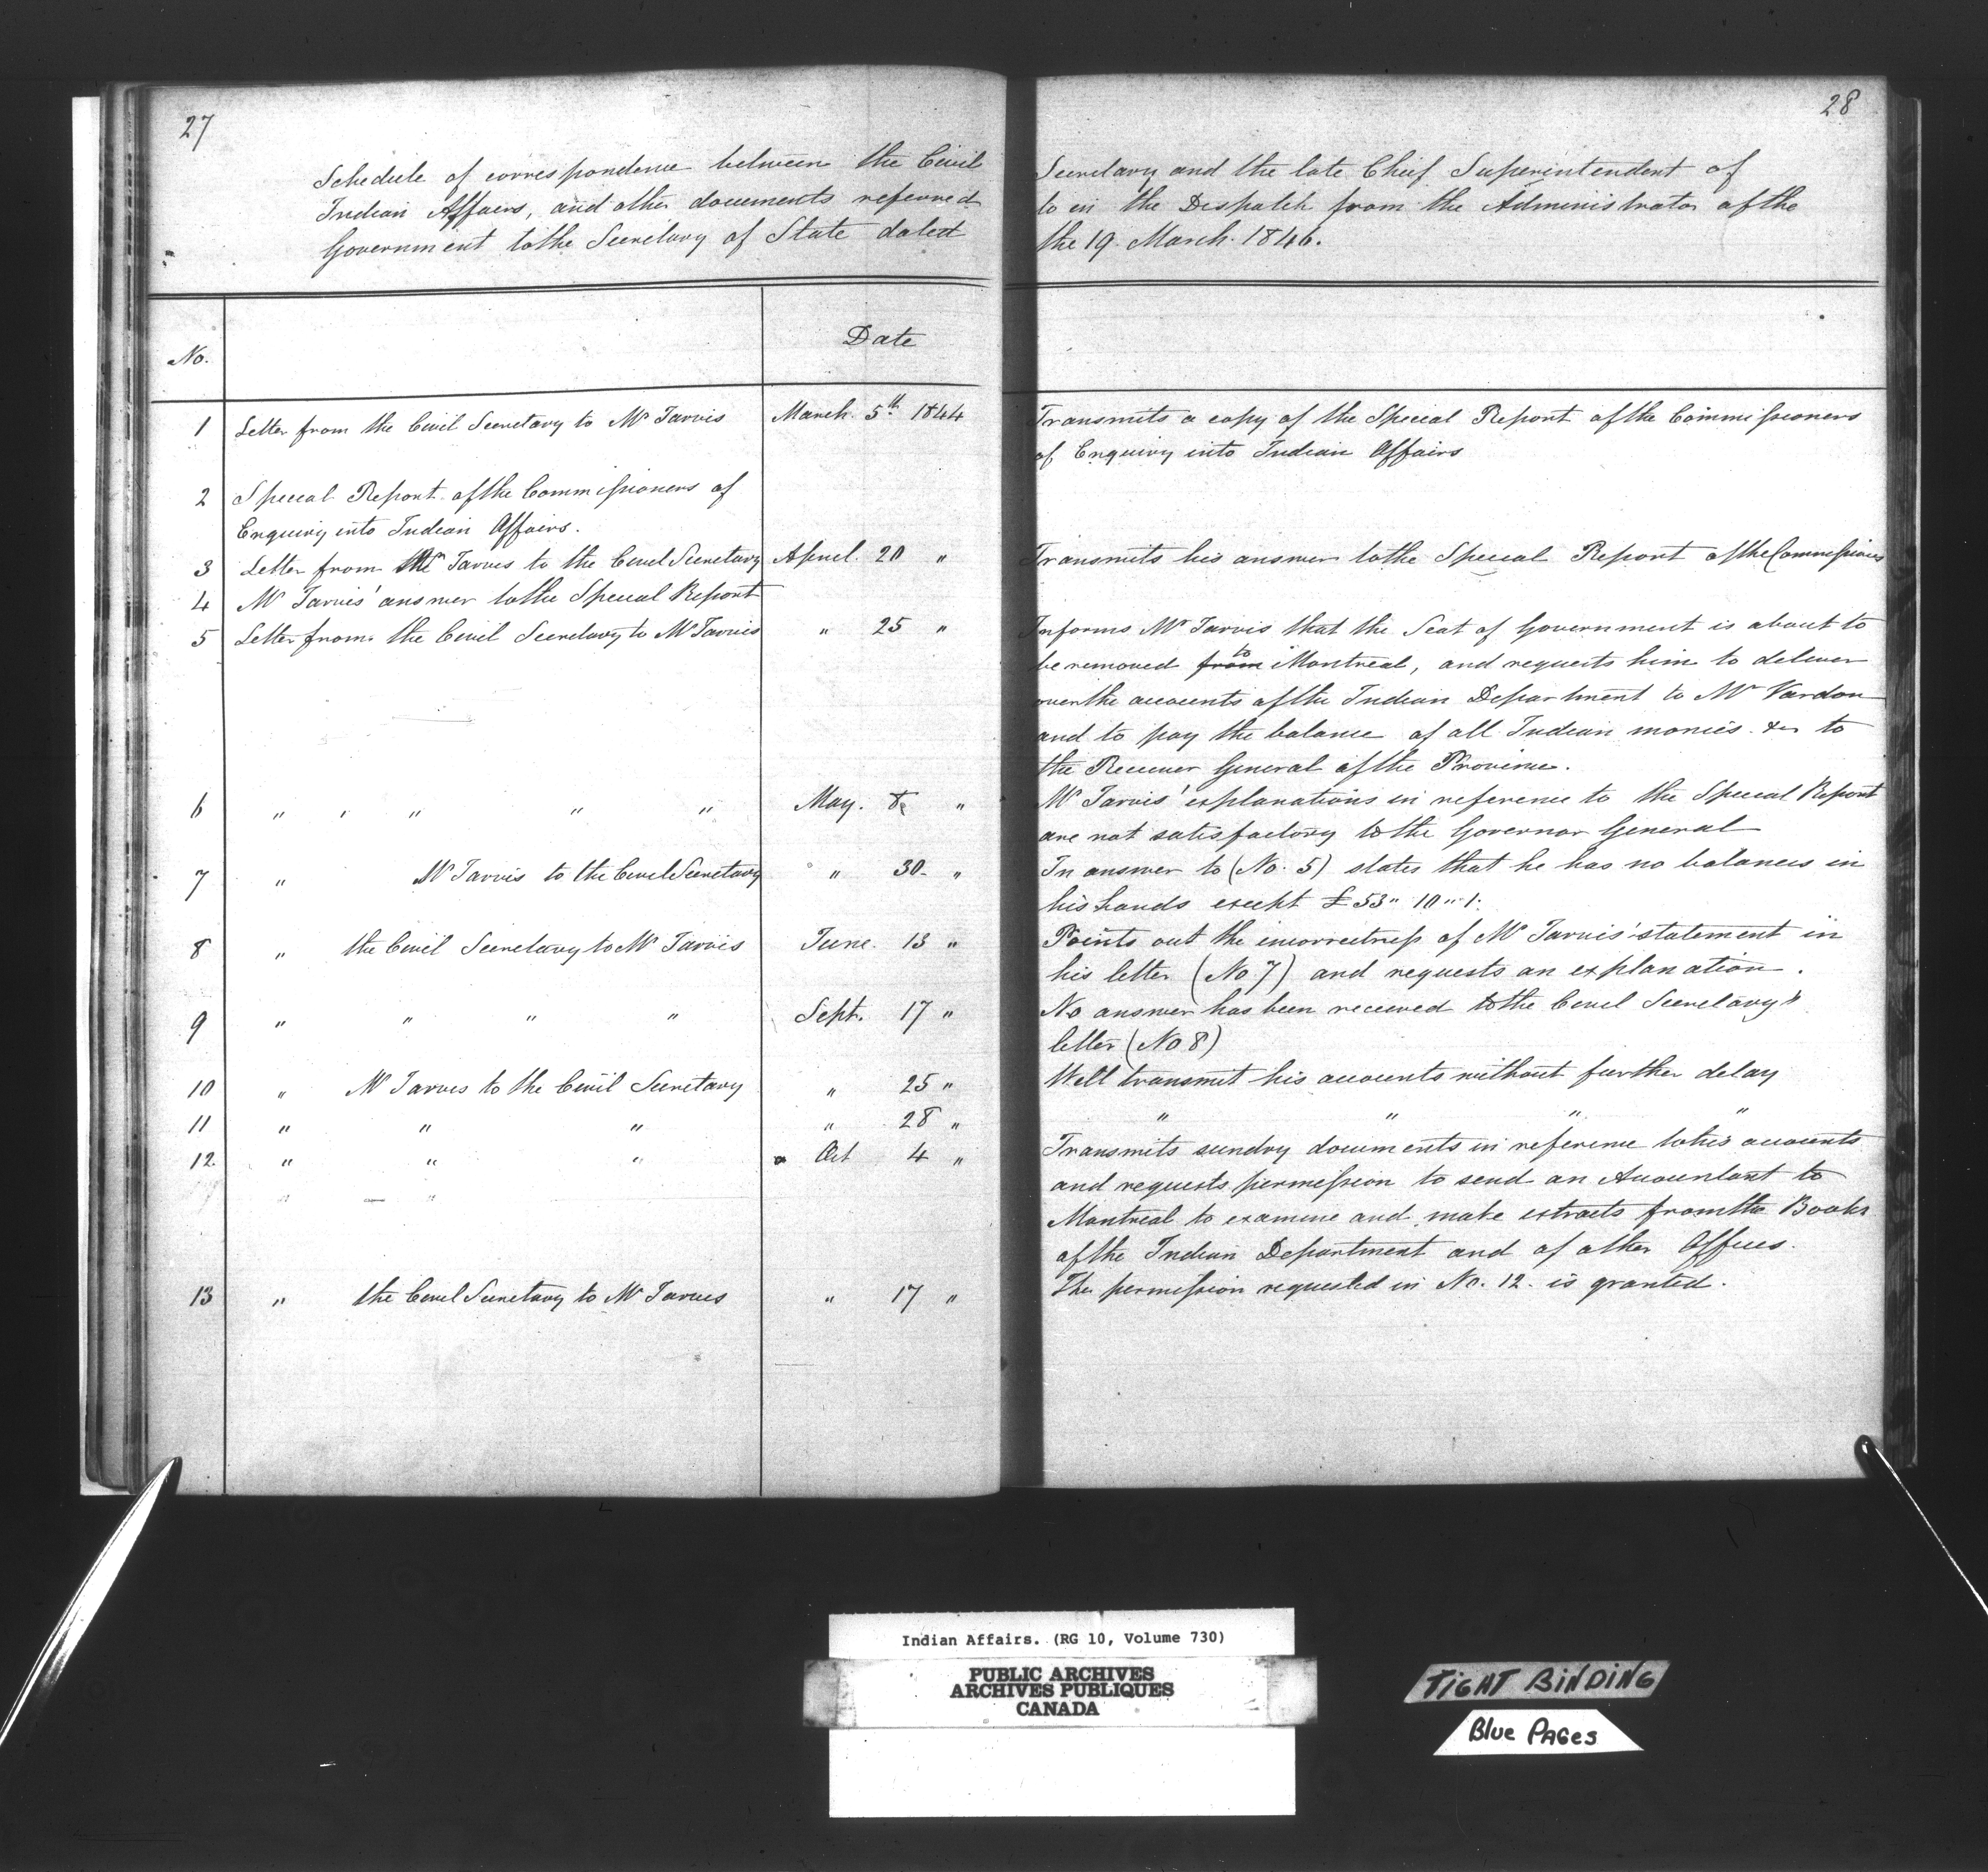 27
28
Schedule of correspondence between the Civil Secretary and the late Chief Superintendent of
Indian Affairs, and other documents referred to in the Dispatch from the Administrator of the
Government to the Secretary of State dated the 19. March. 1846.
No.
Date
1 Letter from the Civil Secretary to Mr Jarvis March 5th 1844 Transmits a copy of the Special Report of the Commissioners
of Enquiry into Indian Affairs
2 Special Report of the Commissioners of
Enquiry into Indian Affairs.
3 Letter from Mr Jarvis to the Civil Secretary April. 20 " Transmits his answer to the Special Report of the Commissioners
4 Mr Jarvis' answer to the Special Report
5 Letter from the Civil Secretary to Mr Jarvis " 25 " Informs Mr Jarvis that the Seat of Government is about to
be removed from to Montreal, and requests him to deliver
over the accounts of the Indian Department to Mr Vardon
and to pay the balance of all Indian monies &c to
the Receiver General of the Province.
6 " " " " " May. 8 " Mr Jarvis' explanations in reference to the Special Report
are not satisfactory to the Governor General
7 " Mr Jarvis to the Civil Secretary " 30. " In answer to (No. 5) states that he has no balances in
his hands except £53" 10" 1.
8 " the Civil Secretary to Mr Jarvis June. 13 " Points out the incorrectness of Mr Jarvis' statement in
his letter (No 7) and requests an explanation.
9 " " " " Sept. 17 " No answer has been received to the Civil Secretary's
letter (No 8)
10 " Mr Jarvis to the Civil Secretary " 25 " Will transmit his accounts without further delay
11 " " " " 28 " " " " "
12. " " " Oct 4 " Transmits sundry documents in reference to his accounts
and requests permission to send an Accountant to
Montreal to examine and make extracts from the Books
of the Indian Department and of other Offices.
13 " the Civil Secretary to Mr Jarvis " 17 " The permission requested in No. 12. is granted.
Indian Affairs. (RG 10, Volume 730)
PUBLIC ARCHIVES
ARCHIVES PUBLIQUES
CANADA
TIGHT BINDING
Blue PAGes